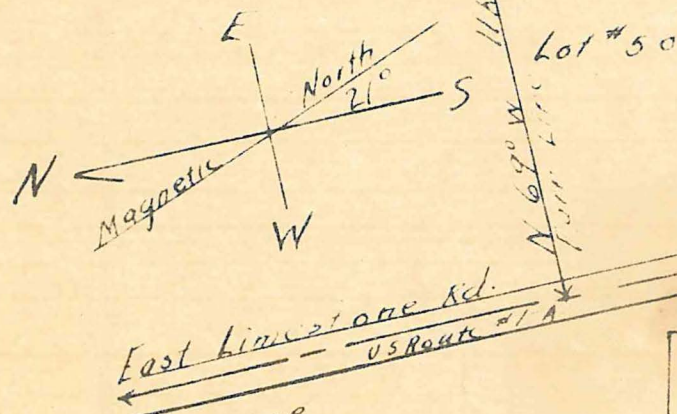 E
North
21°
S
N
Magnetic
W
Lot #50
N 69° W
East Limestone Rd.
US Route #1 A